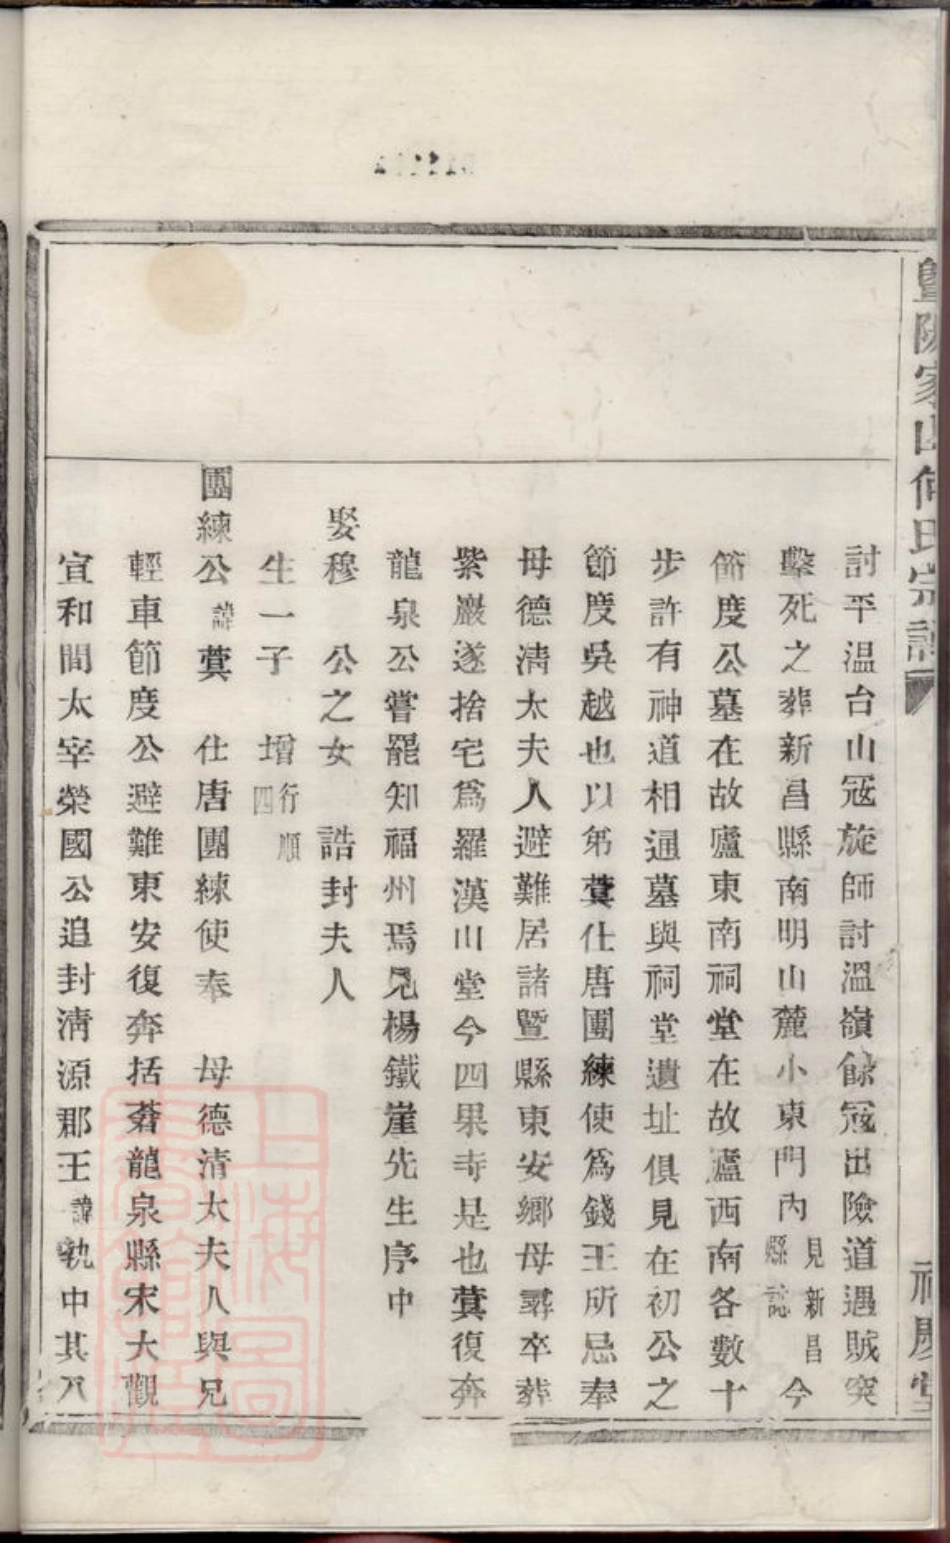 暨陽家山何氏宗譜
討平温台山冦旋師討溫嶺餘冦出險道遇賊突
擊死之葬新昌縣南明山麓小東門內見新昌縣誌今
節度公墓在故廬東南祠堂在故廬西南各數十
步許有神道相通墓與祠堂遺址俱見在初公之
節度吳越也以弟蓂仕唐團練使爲錢王所忌奉
母德淸太夫人避難居諸暨縣東安鄉母尋卒葬
紫巖遂捨宅爲羅漢山堂今四果寺是也蓂復奔
龍泉公嘗罷知福州焉見楊鐵崖先生序中
娶穆 公之女 誥封夫人
生一子 增行順四
團練公諱蓂 仕唐團練使奉 母德淸太夫人與兄
輕車節度公避難東安復奔括蒼龍泉縣宋大觀
宣和間太宰榮國公追封淸源郡王諱執中其八
上海圖書館藏